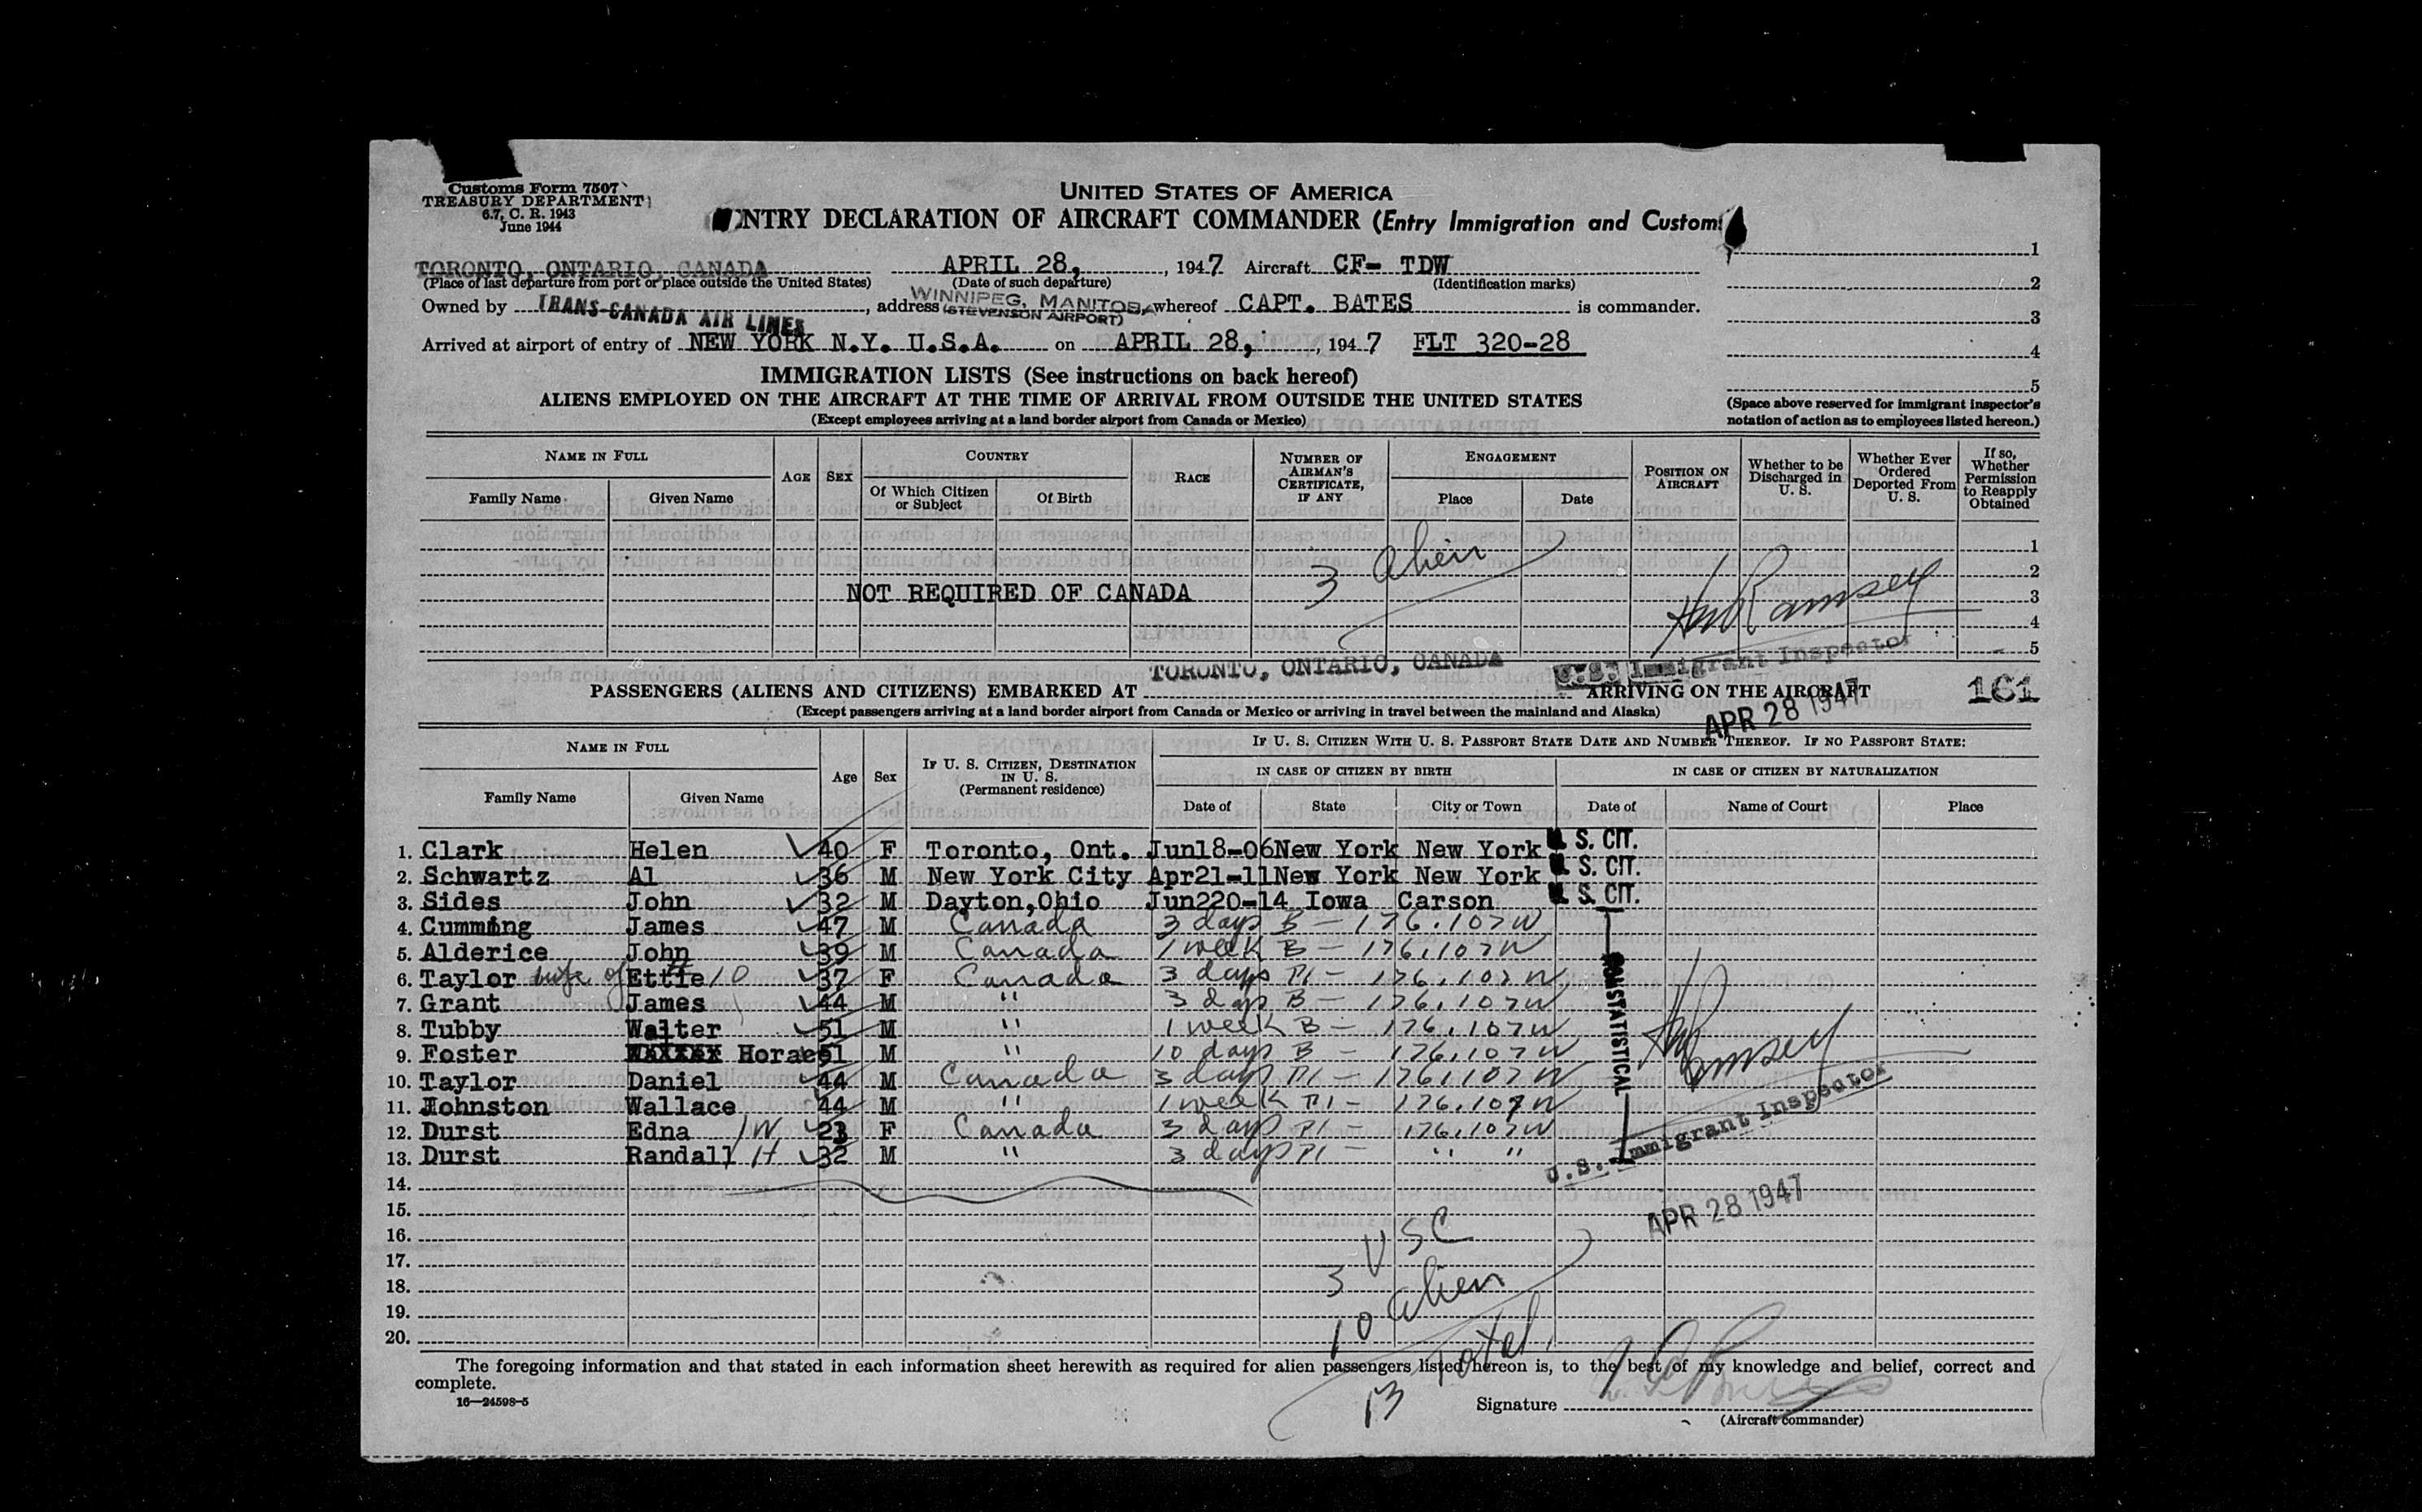 Customs Form 7507
TREASURY DEPARTMENT
6.7, C. R. 1943
June 1944
UNITED STATES OF AMERICA
ENTRY DECLARATION OF AIRCRAFT COMMANDER (Entry Immigration and Customs
TORONTO, ONTARIO, CANADA APRIL 28, , 1947 Aircraft CF- TDW
(Place of last departure from port or place outside the United States) (Date of such departure) (Identification marks)
Owned by TRANS-CANADA AIR LINES , address WINNIPEG, MANITOBA (STEVENSON AIRPORT) whereof CAPT. BATES is commander.
Arrived at airport of entry of NEW YORK N.Y. U.S.A. on APRIL 28, , 1947 FLT 320-28
1
2
3
4
5
(Space above reserved for immigrant inspector's
notation of action as to employees listed hereon.)
IMMIGRATION LISTS (See instructions on back hereof)
ALIENS EMPLOYED ON THE AIRCRAFT AT THE TIME OF ARRIVAL FROM OUTSIDE THE UNITED STATES
(Except employees arriving at a land border airport from Canada or Mexico)
NAME IN FULL
Family Name Given Name
AGE SEX
COUNTRY
Of Which Citizen or Subject Of Birth
RACE
NUMBER OF AIRMAN'S CERTIFICATE, IF ANY
ENGAGEMENT
Place Date
POSITION ON AIRCRAFT
Whether to be Discharged in U. S.
Whether Ever Ordered Deported From U. S.
If so, Whether Permission to Reapply Obtained
1
2
NOT REQUIRED OF CANADA 3 Alien Ramsey 3
4
5
U.S. Immigrant Inspector
TORONTO, ONTARIO, CANADA
PASSENGERS (ALIENS AND CITIZENS) EMBARKED AT ARRIVING ON THE AIRCRAFT 161
(Except passengers arriving at a land border airport from Canada or Mexico or arriving in travel between the mainland and Alaska)
APR 28 1947
NAME IN FULL
Family Name Given Name
Age Sex
IF U. S. CITIZEN, DESTINATION IN U. S.
(Permanent residence)
IF U. S. CITIZEN WITH U. S. PASSPORT STATE DATE AND NUMBER THEREOF. IF NO PASSPORT STATE:
IN CASE OF CITIZEN BY BIRTH IN CASE OF CITIZEN BY NATURALIZATION
Date of State City or Town Date of Name of Court Place
1. Clark Helen 40 F Toronto, Ont. Jun18-06 New York New York U. S. CIT.
2. Schwartz Al 36 M New York City Apr21-11 New York New York U. S. CIT.
3. Sides John 32 M Dayton,Ohio Jun220-14 Iowa Carson U. S. CIT.
4. Cumming James 47 M Canada 3 days B - 176.107W
5. Alderice John 39 M Canada 1 week B - 176.107W
6. Taylor wife of Ettie 10 37 F Canada 3 days P1 - 176.107W
7. Grant James 44 M " 3 days B - 176.107W
8. Tubby Walter 51 M " 1 week B - 176.107W
9. Foster Horace 51 M " 10 days B - 176.107W
10. Taylor Daniel 44 M Canada 3 days P1 - 176.107W
11. Johnston Wallace 44 M " 1 week P1 - 176.107W
12. Durst Edna W 23 F Canada 3 days P1 - 176.107W
13. Durst Randall H 32 M " 3 days P1 - " "
NONSTATISTICAL
Ramsey
U.S. Immigrant Inspector
APR 28 1947
14.
15.
16.
17.
18.
19.
20.
3 USC
10 Alien
13 Total
The foregoing information and that stated in each information sheet herewith as required for alien passengers listed hereon is, to the best of my knowledge and belief, correct and
complete.
16—24598-5
Signature
(Aircraft commander)